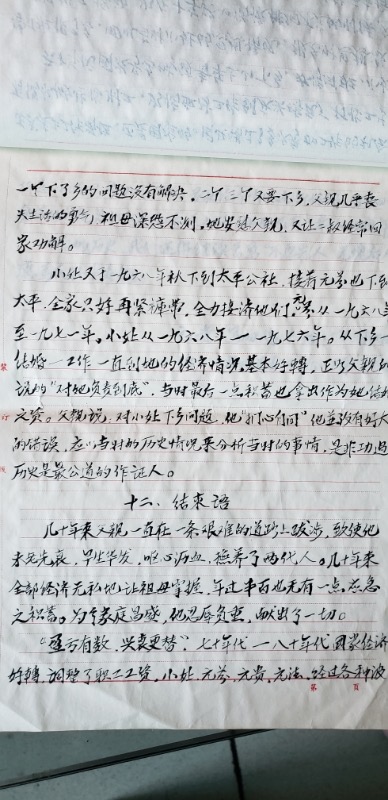 一个下了乡的问题没有解决，二个三个又要下乡，父亲几乎丧
失生活的勇气，祖母深恐不测，她安慰父亲，又让二叔经常回
家劝解。
小处又于一九六八年秋下到太平公社，接着元芬也下到
太平，全家只好再紧裤带，全力接济他们，从一九六八年
至一九七一年，小处从一九六八年—一九七六年。从下乡—
结婚—工作一直到她的经济情况基本好转，正如父亲所
说的"对她负责到底"，当时最后一点积蓄也拿出作为她结婚
之资。父亲说：对小处下乡问题，他"扪心自问"他并没有好大
的错误，应以当时的历史情况来分析当时的事情，是非功过
历史是最公道的作证人。
十二、结束语
几十年来父亲一直在一条艰难的道路上跋涉，致使他
未老先衰，早生华发，呕心沥血，抚养了两代人。几十年来
全部经济无私地让祖母掌握，年过半百也无有一点应急
之积蓄。为了家庭昌盛，他忍辱负重，献出了一切。
"运方有数，兴衰更替"，七十年代—八十年代国家经济
好转，调整了职工工资，小处，元芬，元贵，元法，经过各种波
第 页
装
订